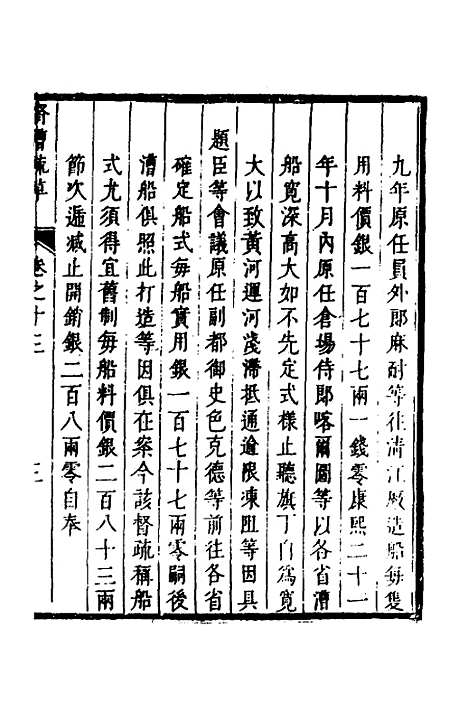 九年原任員外郎麻耐等往清江厰造船每隻
用料價銀一百七十七兩一錢零康熙二十一
年十月內原任倉塲侍郎喀爾圖等以各省漕
船寬深高大如不先定式樣止聽旗丁自爲寬
大以致黃河運河淺滯抵通逾限凍阻等因具
題臣等會議原任副都御史色克德等前往各省
確定船式每船實用銀一百七十七兩零嗣後
漕船俱照此打造等因俱在案今該督疏稱船
式尤須得宜舊制每船料價銀二百八十三兩
節次遞減止開銷銀二百八兩零自奉
督漕疏草
卷之十二